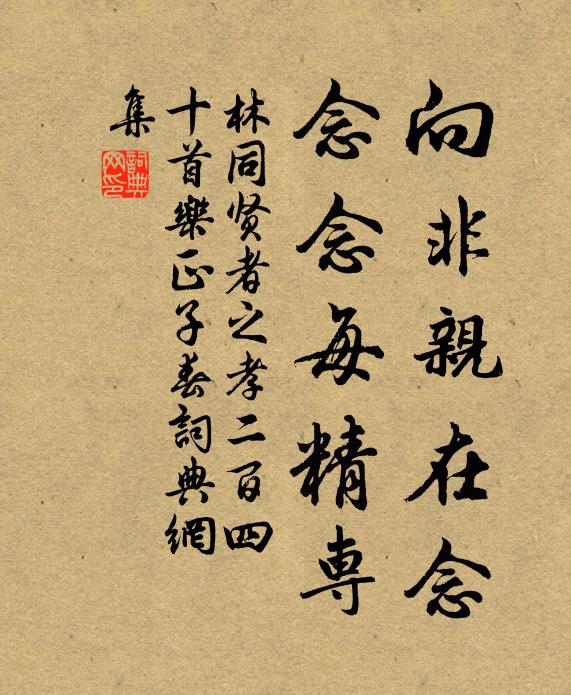 向非親在念
念念每精専
林同贤者之孝二百四
十首樂正子春詞典網
集
詞典
网印